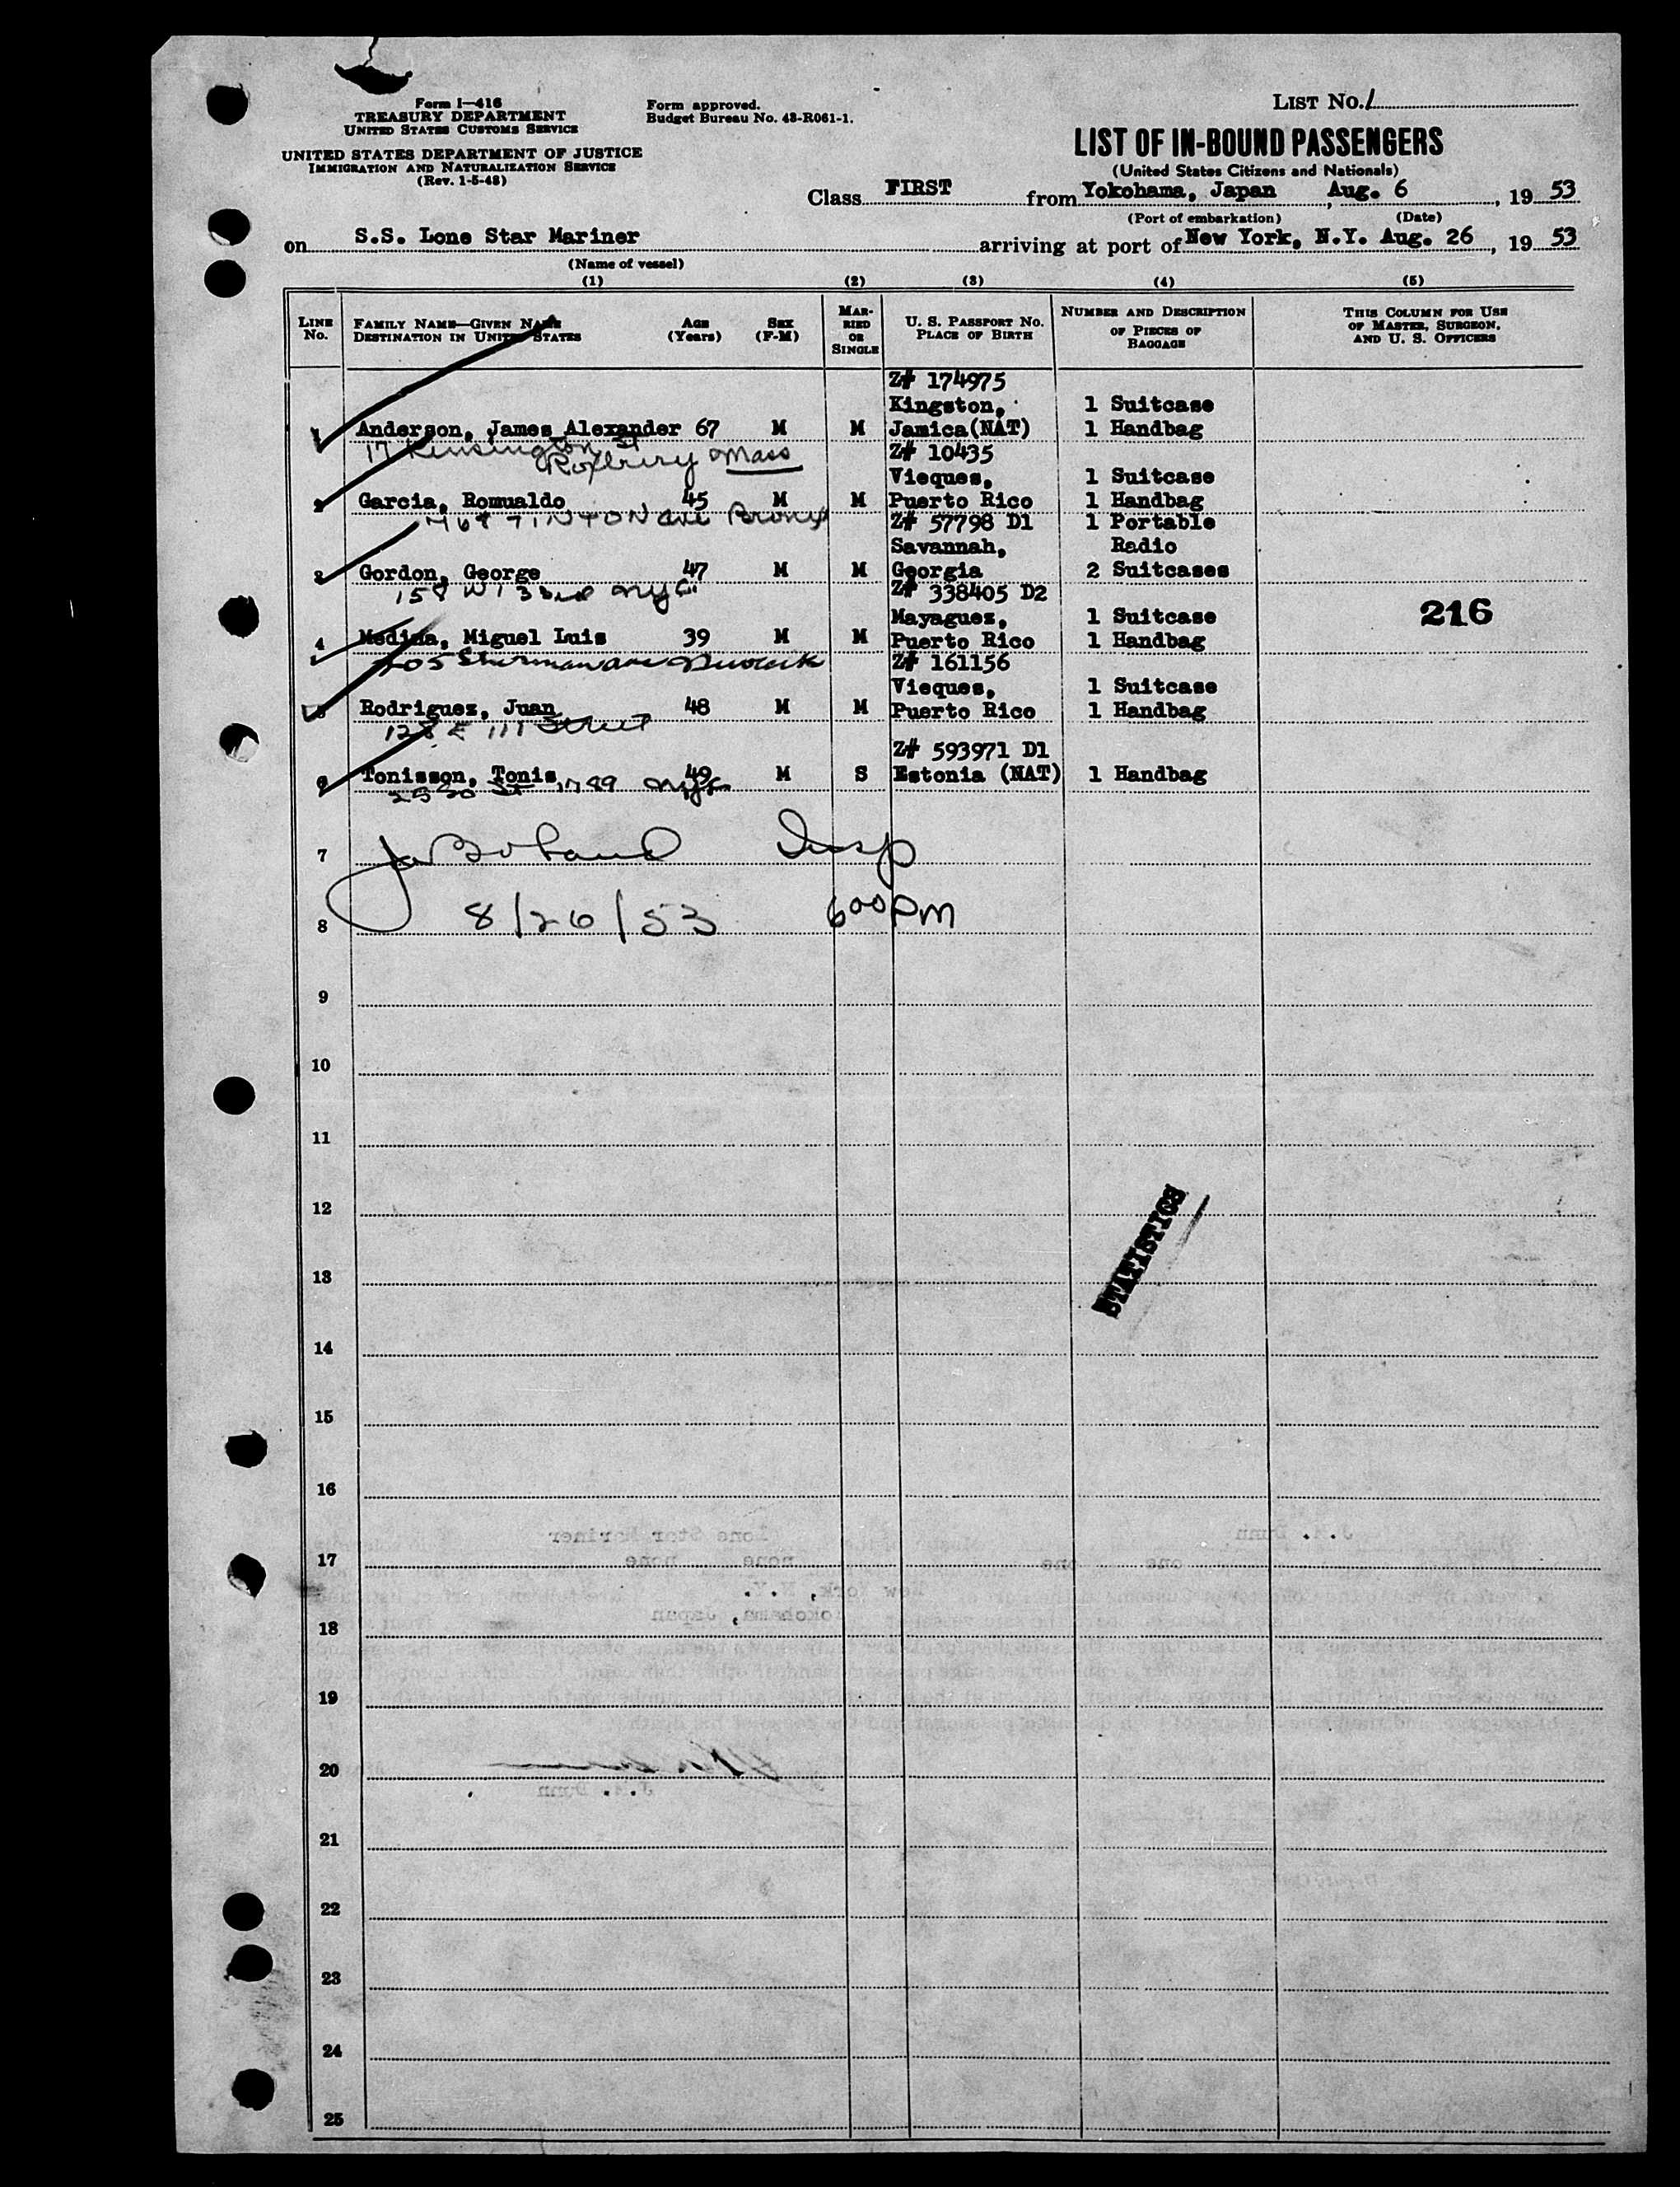 Form I-416
TREASURY DEPARTMENT
UNITED STATES CUSTOMS SERVICE
UNITED STATES DEPARTMENT OF JUSTICE
IMMIGRATION AND NATURALIZATION SERVICE
(Rev. 1-5-48)
Form approved.
Budget Bureau No. 43-R061-1.
LIST NO. 1
LIST OF IN-BOUND PASSENGERS
(United States Citizens and Nationals)
Class FIRST from Yokohama, Japan, Aug. 6, 19 53
(Port of embarkation) (Date)
on S.S. Lone Star Mariner arriving at port of New York, N.Y. Aug. 26, 19 53
(Name of vessel)
(1) (2) (3) (4) (5)
LINE No. FAMILY NAME—GIVEN NAME DESTINATION IN UNITED STATES AGE (Years) SEX (F-M) MARRIED OR SINGLE U. S. PASSPORT NO. PLACE OF BIRTH NUMBER AND DESCRIPTION OF PIECES OF BAGGAGE THIS COLUMN FOR USE OF MASTER, SURGEON, AND U. S. OFFICERS
Z# 174975
Kingston, 1 Suitcase
1 Anderson, James Alexander 67 M M Jamica(NAT) 1 Handbag
17 Kensington St Z# 10435
Roxbury Mass
Vieques, 1 Suitcase
2 Garcia, Romualdo 45 M M Puerto Rico 1 Handbag
768 TINTON ave Bronx Z# 57798 D1 1 Portable
Savannah, Radio
3 Gordon, George 47 M M Georgia 2 Suitcases
158 W 133rd NYC Z# 338405 D2
Mayaguez, 1 Suitcase 216
4 Medina, Miguel Luis 39 M M Puerto Rico 1 Handbag
Sherman ave Newark Z# 161156
Vieques, 1 Suitcase
5 Rodriguez, Juan 48 M M Puerto Rico 1 Handbag
128 E 111 Street
Z# 593971 D1
6 Tonisson, Tonis 49 M S Estonia (NAT) 1 Handbag
St NYC
7 Insp
8 8/26/53 6 00 PM
9
10
11
12
STATISTICS
13
14
15
16
J.A. Dunn Lone Star Mariner
17 none none
New York, N.Y.
Yokohama, Japan
18
19
20
J.A. Dunn
21
22
23
24
25